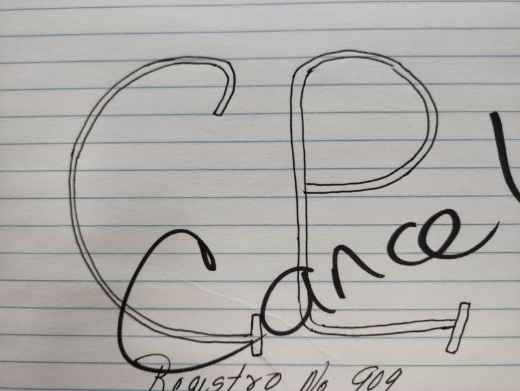 CP
Cancel
Registro No 909